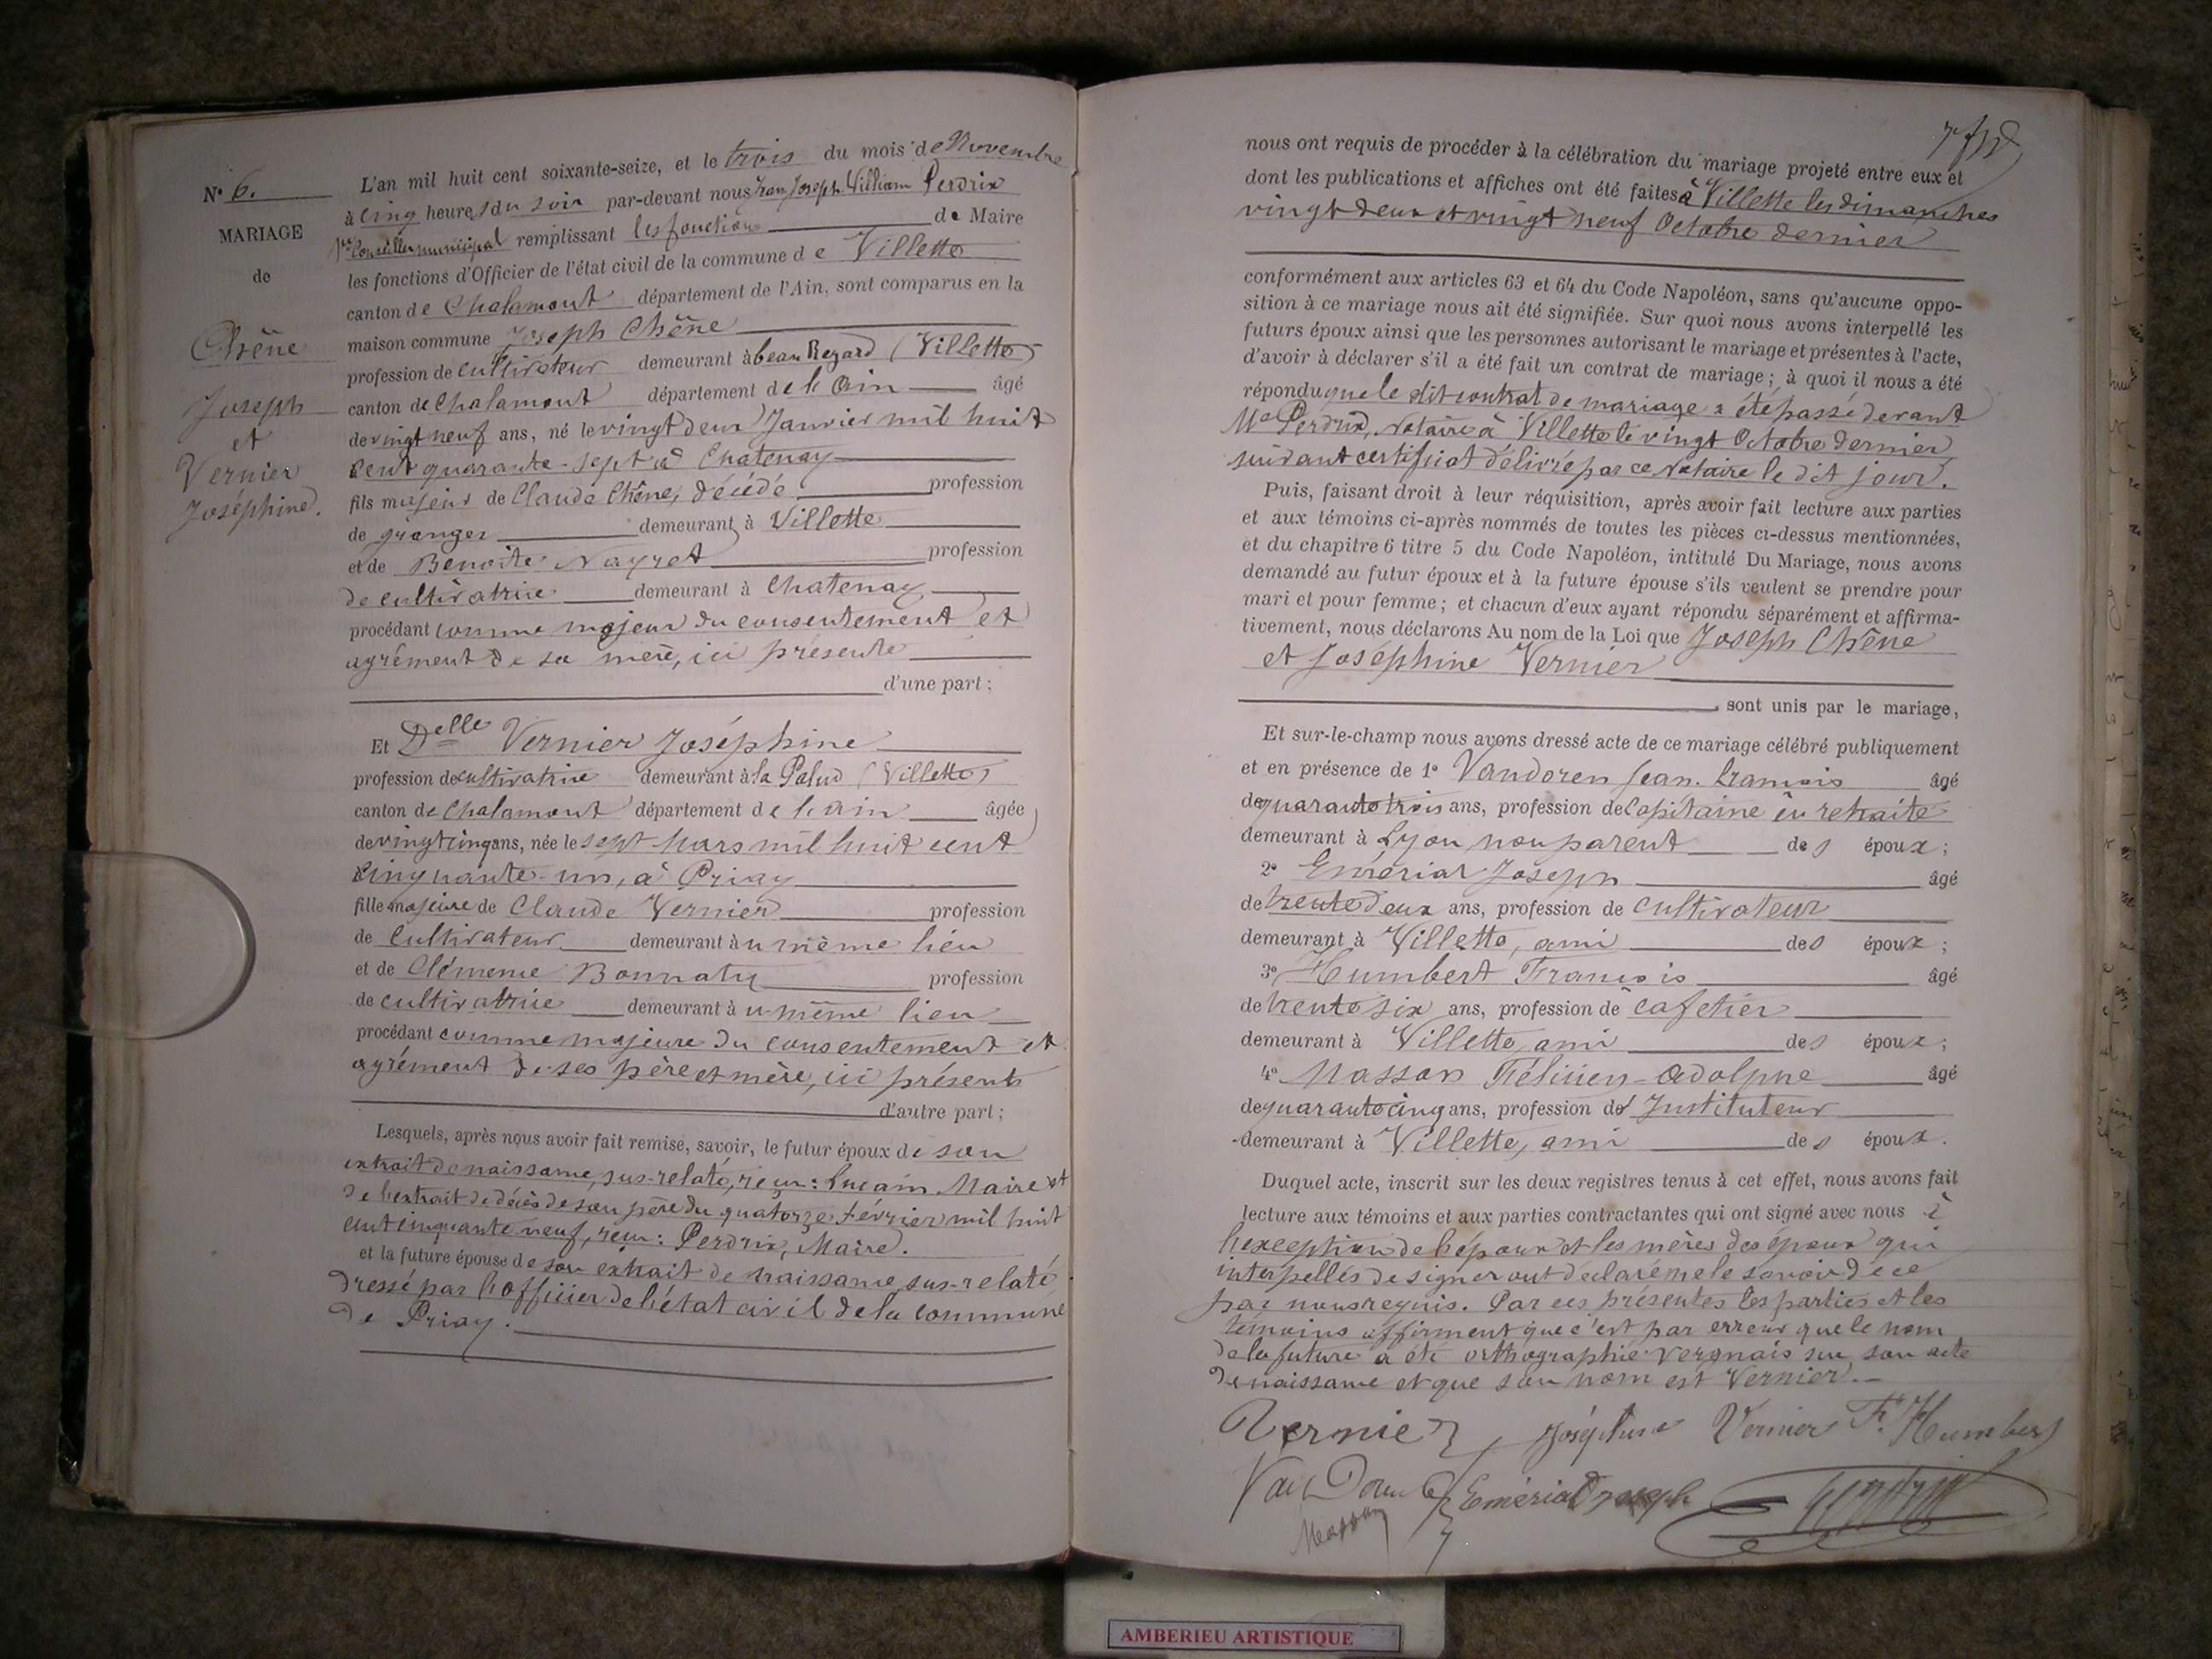 N° 6.
MARIAGE
de
Chêne
Joseph
et
Vernier
Joséphine.
L'an mil huit cent soixante-seize, et le trois du mois de Novembre
à cinq heures du soir par-devant nous Jean Joseph William Perdrix
Conseiller municipal remplissant les fonctions de Maire
les fonctions d'Officier de l'état civil de la commune de Villette
canton de Chalamont département de l'Ain, sont comparus en la
maison commune Joseph Chêne
profession de cultivateur demeurant à beau Regard (Villette)
canton de Chalamont département de l'Ain âgé
de vingt neuf ans, né le vingt deux Janvier mil huit
cent quarante-sept à Chatenay
fils majeur de Claude Chêne, décédé profession
de granger demeurant à Villette
et de Benoîte Nayret profession
de cultivatrice demeurant à Chatenay
procédant comme majeur du consentement et
agrément de sa mère, ici présente
d'une part;
Et Delle Vernier Joséphine
profession de cultivatrice demeurant à la Palud (Villette)
canton de Chalamont département de l'ain âgée
de vingt cinq ans, née le sept Mars mil huit cent
cinquante-un, à Priay
fille majeure de Claude Vernier profession
de cultivateur demeurant au même lieu
et de Clémence Bonnaty profession
de cultivatrice demeurant au même lieu
procédant comme majeure du consentement et
agrément de ses père et mère, ici présents
d'autre part;
Lesquels, après nous avoir fait remise, savoir, le futur époux de son
extrait de naissance, sus-relaté, reçu: Maire et
de l'extrait de décès de son père du quatorze février mil huit
cent cinquante neuf, reçu: Perdrix, Maire.
et la future épouse de son extrait de naissance sus-relaté
dressé par l'officier de l'état civil de la commune
de Priay.
nous ont requis de procéder à la célébration du mariage projeté entre eux et
dont les publications et affiches ont été faites à Villette les dimanches
vingt deux et vingt neuf Octobre dernier
conformément aux articles 63 et 64 du Code Napoléon, sans qu'aucune oppo-
sition à ce mariage nous ait été signifiée. Sur quoi nous avons interpellé les
futurs époux ainsi que les personnes autorisant le mariage et présentes à l'acte,
d'avoir à déclarer s'il a été fait un contrat de mariage; à quoi il nous a été
répondu que le dit contrat de mariage a été passé devant
Me Perdrix, Notaire à Villette le vingt Octobre dernier
suivant certificat délivré par ce Notaire le dit jour.
Puis, faisant droit à leur réquisition, après avoir fait lecture aux parties
et aux témoins ci-après nommés de toutes les pièces ci-dessus mentionnées,
et du chapitre 6 titre 5 du Code Napoléon, intitulé Du Mariage, nous avons
demandé au futur époux et à la future épouse s'ils veulent se prendre pour
mari et pour femme; et chacun d'eux ayant répondu séparément et affirma-
tivement, nous déclarons Au nom de la Loi que Joseph Chêne
et Joséphine Vernier
sont unis par le mariage,
Et sur-le-champ nous avons dressé acte de ce mariage célébré publiquement
et en présence de 1° Vandoren Jean. François âgé
de quarante trois ans, profession de Capitaine en retraite
demeurant à Lyon, non parent des époux;
2° Emérias Joseph âgé
de trente deux ans, profession de cultivateur
demeurant à Villette, ami des époux;
3° Humbert François âgé
de trente six ans, profession de cafetier
demeurant à Villette, ami des époux;
4° Masson Félicien-Adolphe âgé
de quarante cinq ans, profession d' Instituteur
demeurant à Villette, ami des époux.
Duquel acte, inscrit sur les deux registres tenus à cet effet, nous avons fait
lecture aux témoins et aux parties contractantes qui ont signé avec nous à
l'exception de l'époux et les mères des époux qui
interpellés de signer ont déclaré ne le savoir de ce
par nous requis. Par ces présentes les parties et les
témoins affirment que c'est par erreur que le nom
de la future a été orthographié Vergnais sur son acte
de naissance et que son nom est Vernier.
Vernier Joséphine Vernier F. Humbert
Van Doren Emérias Joseph Perdrix
Masson
AMBERIEU ARTISTIQUE